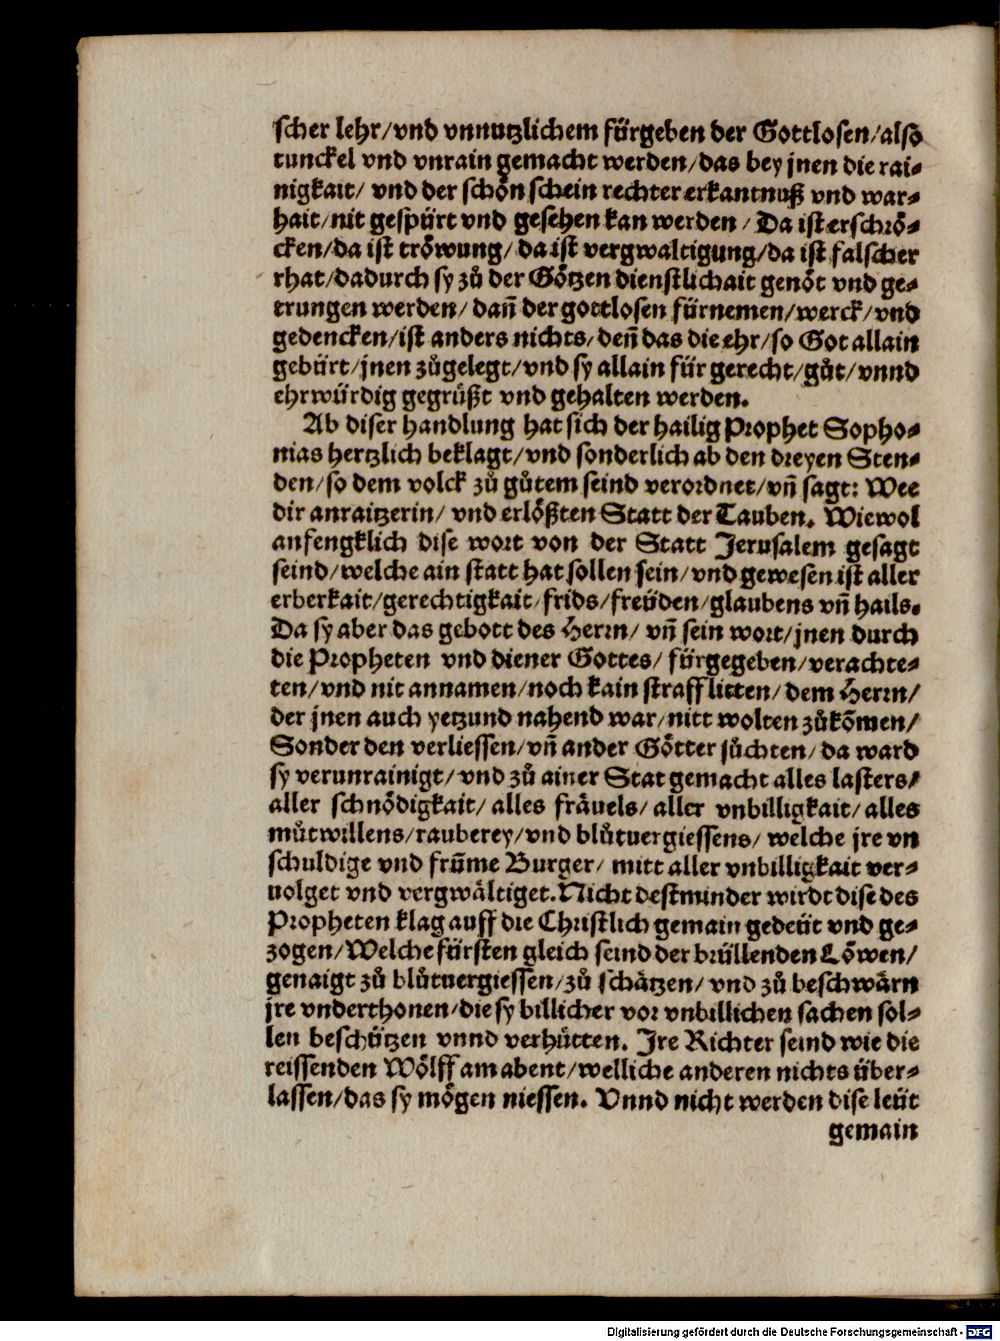 scher lehr/vnd vnnutzlichem fürgeben der Gottlosen/also
tunckel vnd vnrain gemacht werden/das bey jnen die rai-
nigkait/ vnd der schön schein rechter erkantnuß vnd war-
hait/nit gespürt vnd gesehen kan werden/ Da ist erschrö-
cken/da ist tröwung/ da ist vergwaltigung/da ist falscher
rhat/dadurch sy zů der Götzen dienstlichait genöt vnd ge-
trungen werden/ dañ der gottlosen fürnemen/werck/vnd
gedencken/ist anders nichts/deñ das die ehr/so Got allain
gebürt/jnen zůgelegt/vnd sy allain für gerecht/gůt/vnnd
ehrwürdig gegrüßt vnd gehalten werden.
Ab diser handlung hat sich der hailig Prophet Sopho-
nias hertzlich beklagt/vnd sonderlich ab den dreyen Sten-
den/so dem volck zů gůtem seind verordnet/vñ sagt: Wee
dir anraitzerin/ vnd erlößten Statt der Tauben. Wiewol
anfengklich dise wort von der Statt Jerusalem gesagt
seind/welche ain statt hat sollen sein/vnd gewesen ist aller
erberkait/gerechtigkait/frids/freüden/glaubens vñ hails.
Da sy aber das gebott des Herrn/ vñ sein wort/jnen durch
die Propheten vnd diener Gottes/ fürgegeben/verachte-
ten/vnd nit annamen/noch kain straff litten/dem Herrn/
der jnen auch yetzund nahend war/nitt wolten zůkõmen/
Sonder den verliessen/vñ ander Götter sůchten/da ward
sy verunrainigt/vnd zů ainer Stat gemacht alles lasters/
aller schnödigkait/ alles fräuels/ aller vnbilligkait/alles
můtwillens/rauberey/vnd blůtuergiessens/ welche jre vn
schuldige vnd frũme Burger/ mitt aller vnbilligkait ver-
uolget vnd vergwältiget. Nicht destminder wirdt dise des
Propheten klag auff die Christlich gemain gedeüt vnd ge-
zogen/Welche fürsten gleich seind der brüllenden Löwen/
genaigt zů blůtuergiessen/zů schätzen/ vnd zů beschwärn
jre vnderthonen/die sy billicher vor vnbillichen sachen sol-
len beschützen vnnd verhütten. Jre Richter seind wie die
reissenden Wölff am abent/welliche anderen nichts über-
lassen/das sy mögen niessen. Vnnd nicht werden dise leüt
gemain
Digitalisierung gefördert durch die Deutsche Forschungsgemeinschaft - DFG